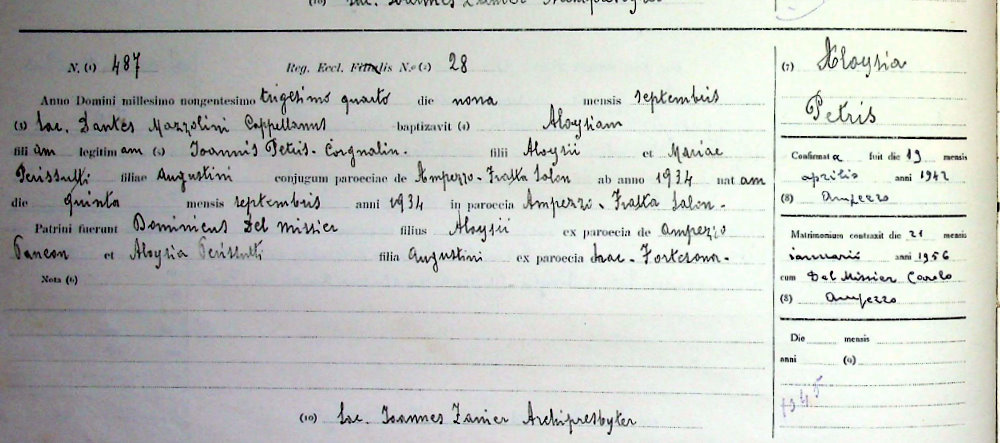 (10) Sac. Ioannes Zanier Archipresbyter
N. (1) 487 Reg. Eccl. Filialis N.o (2) 28
Anno Domini millesimo nongentesimo trigesimo quarto die nona mensis septembris
(3) Sac. Dantes Mazzolini Coppellanus baptizavit (4) Aloysiam
fili am legitim am (5) Ioannis Petris-Corgnalin- filii Aloysii et Mariae
Perissutti filiae Augustini conjugum paroeciae de Ampezzo-Fratta Salon ab anno 1934 nat am
die quinta mensis septembris anni 1934 in paroecia Ampezzi-Fratta Salon-
Patrini fuerunt Dominicus Del Missier filius Aloysii ex paroecia de Ampezzo
et Aloysia Perissutti filia Augustini ex paroecia
Nota (6)
(10) Sac. Ioannes Zanier Archipresbyter
(7) Aloysia
Petris
Confirmat a fuit die 19 mensis
aprilis anni 1942
(8) Ampezzo
Matrimonium contraxit die 21 mensis
ianuarii anni 1956
cum Del Missier Carolo
(8) Ampezzo
Die mensis
anni (9)
1945